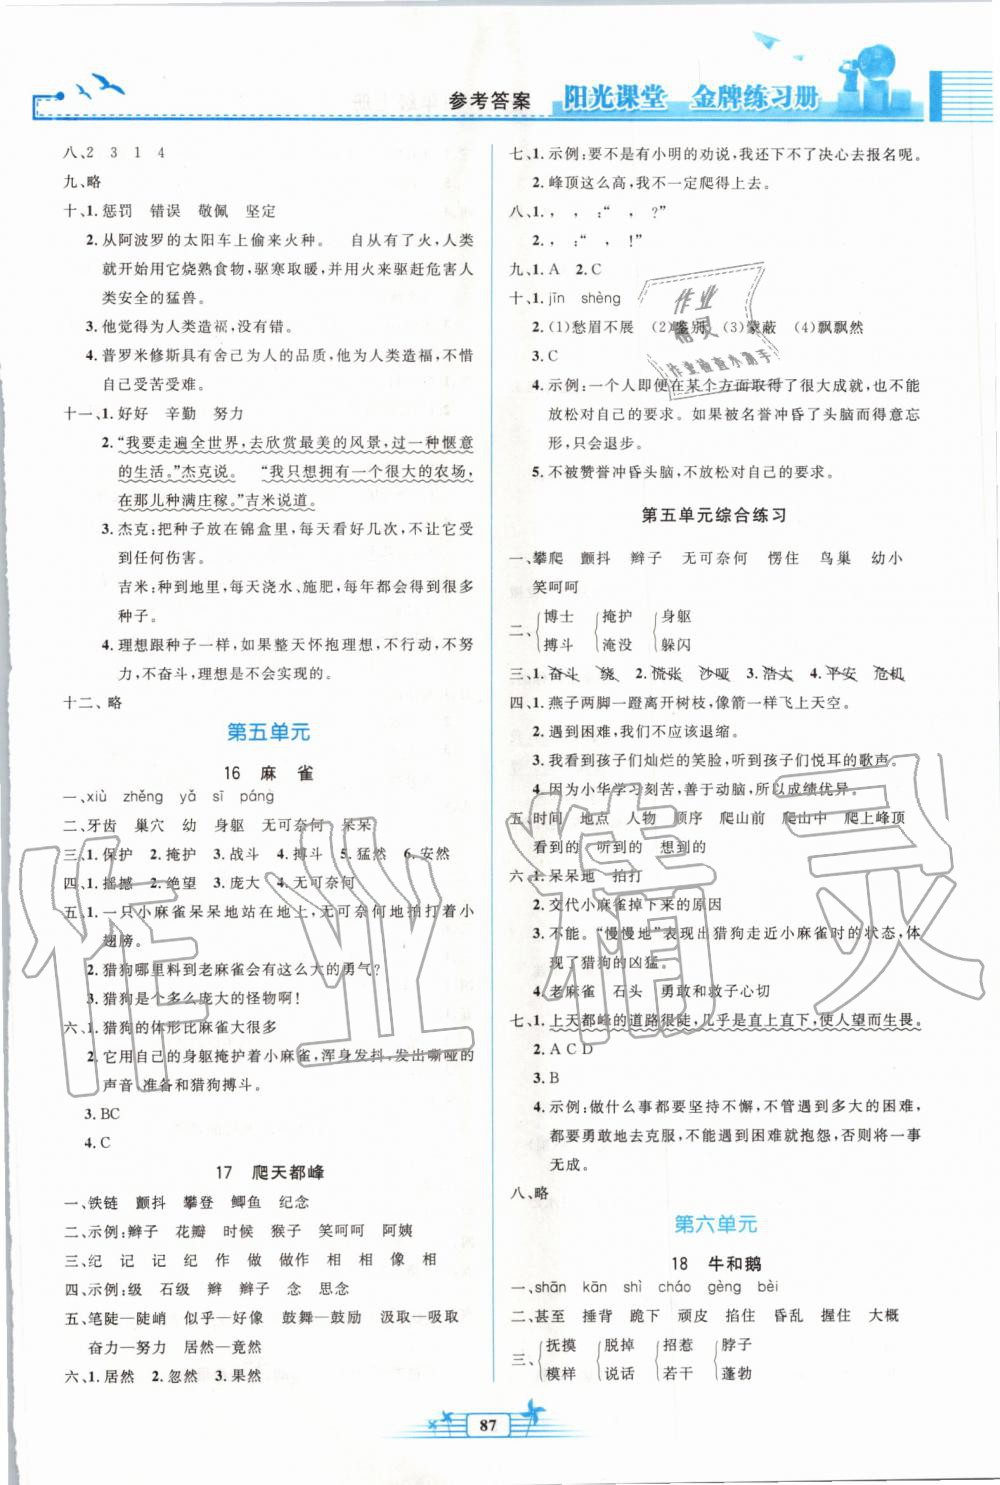 参考答案
阳光课堂 金牌练习册
八、2 3 1 4
九、略
十、1. 惩罚 错误 敬佩 坚定
2. 从阿波罗的太阳车上偷来火种。 自从有了火,人类
就能用它烧熟食物,驱寒取暖,并用火来驱赶危害人
类安全的猛兽。
3. 他觉得为人类造福,没有错。
4. 普罗米修斯具有舍己为人的品质,他为人类造福,不惜
自己受苦受难。
十一、1. 好好 辛勤 努力
2. “我要走遍全世界,去欣赏最美的风景,过一种惬意
的生活。”杰克说。 “我只想拥有一个很大的农场,
在那儿种满庄稼。”吉米说道。
3. 杰克:把种子放在锦盒里,每天看好几次,不让它受到
任何伤害。
吉米:种到地里,每天浇水、施肥,每年都能得到很多
种子。
4. 理想跟种子一样,如果整天怀抱理想,不行动、不努
力,不奋斗,理想是不会实现的。
十二、略
第五单元
16 麻 雀
一、xiù zhěng yǎ sī páng
二、牙齿 巢穴 幼 身躯 无可奈何 呆呆
三、1. 保护 2. 掩护 3. 战斗 4. 搏斗 5. 猛然 6. 安然
四、1. 摇撼 2. 绝望 3. 庞大 4. 无可奈何
五、1. 一只小麻雀呆呆地站在地上,无可奈何地拍打着小
翅膀。
2. 猎狗哪里料到老麻雀会有这么大的勇气?
3. 猎狗是个多么庞大的怪物啊!
六、1. 猎狗的体形比麻雀大很多
2. 它用自己的身躯掩护着小麻雀,浑身发抖,发出嘶哑的
声音 准备和猎狗搏斗。
3. BC
4. C
17 爬天都峰
一、铁链 颤抖 攀登 鲫鱼 纪念
二、示例:辫子 花瓣 时候 猴子 笑呵呵 阿姨
三、纪 记 记 纪 作 做 做作 相 相 像 相
四、示例:级 石级 辫 辫子 念 思念
五、笔陡—陡峭 似乎—好像 鼓舞—鼓励 汲取—吸取
奋力—努力 居然—竟然
六、1. 居然 2. 忽然 3. 果然
七、1. 示例:要不是有小明的劝说,我还下不了决心去报名呢。
2. 峰顶这么高,我不一定爬得上去。
八、1. , , :“ , ?”
2. , :“ , !”
九、1. A 2. C
十、1. jīn shèng
2. (1)愁眉不展 (2)鉴别 (3)蒙蔽 (4)飘飘然
3. C
4. 示例:一个人即便在某个方面取得了很大成就,也不能
放松对自己的要求。如果被名誉冲昏了头脑而得意忘
形,只会退步。
5. 不被赞誉冲昏头脑,不放松对自己的要求。
第五单元综合练习
一、攀爬 颤抖 辫子 无可奈何 愣住 鸟巢 幼小
笑呵呵
二、博士 掩护 身躯
搏斗 淹没 躲闪
三、1. 奋斗 绕 2. 慌张 沙哑 3. 浩大 4. 平安 危机
四、1. 燕子两脚一蹬离开树枝,像箭一样飞上天空。
2. 遇到困难,我们不应该退缩。
3. 我看到孩子们灿烂的笑脸,听到孩子们悦耳的歌声。
4. 因为小华学习刻苦,善于动脑,所以成绩优异。
五、时间 地点 人物 顺序 爬山前 爬山中 爬上峰顶
看到的 听到的 想到的
六、1. 呆呆地 拍打
2. 交代小麻雀掉下来的原因
3. 不能。“慢慢地”表现出猎狗走近小麻雀时的状态,体
现了猎狗的凶猛。
4. 老麻雀 石头 勇敢和救子心切
七、1. 上天都峰的道路很陡,几乎是直上直下,使人望而生畏。
2. A C D
3. B
4. 示例:做什么事都要坚持不懈,不管遇到多大的困难,
都要勇敢地去克服,不能遇到困难就抱怨,否则将一事
无成。
八、略
第六单元
18 牛和鹅
一、shān kān shì cháo gèng bèi
二、甚至 捶背 跪下 顽皮 掐住 昏乱 握住 大概
三、抚摸 脱掉 招惹 脖子
模样 说话 若干 蓬勃
87
作业
精灵
作业检查小助手
作业精灵